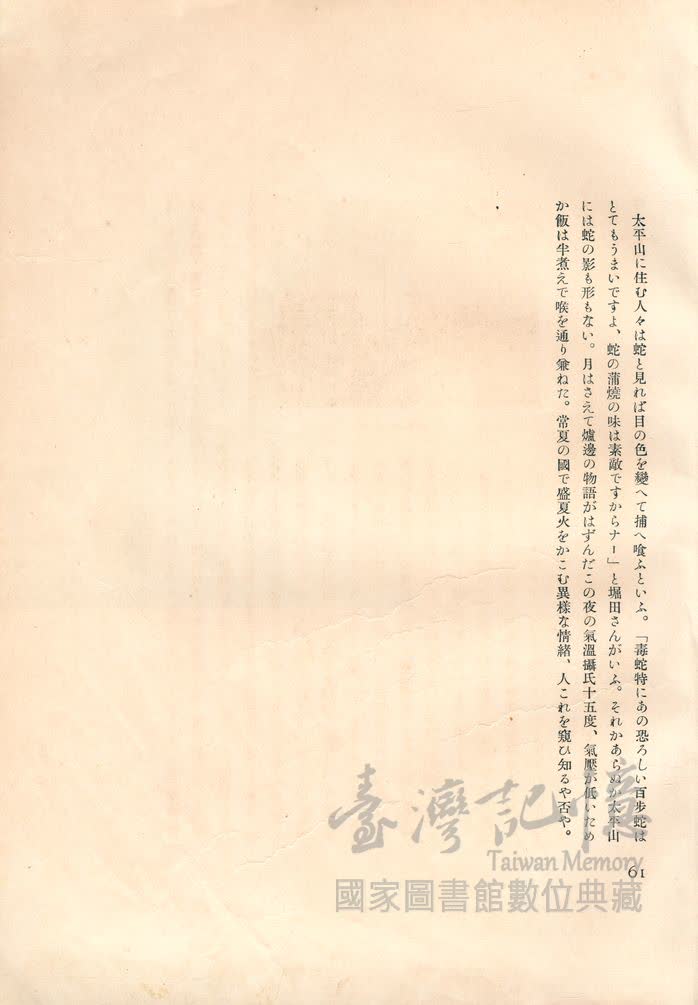 太平山に住む人々は蛇と見れば目の色を變へて捕へ喰ふといふ。「毒蛇特にあの恐ろしい百步蛇は
とてもうまいですよ、蛇の蒲燒の味は素敵ですからナー」と堀田さんがいふ。それかあらぬか太平山
には蛇の影も形もない。月はさえて爐邊の物語がはずんだこの夜の氣溫攝氏十五度、氣壓が低いため
か飯は半煮えで喉を通り兼ねた。常夏の國で盛夏火をかこむ異樣な情緖、人これを窺ひ知るや否や。
61
臺灣記憶
Taiwan Memory
國家圖書館數位典藏